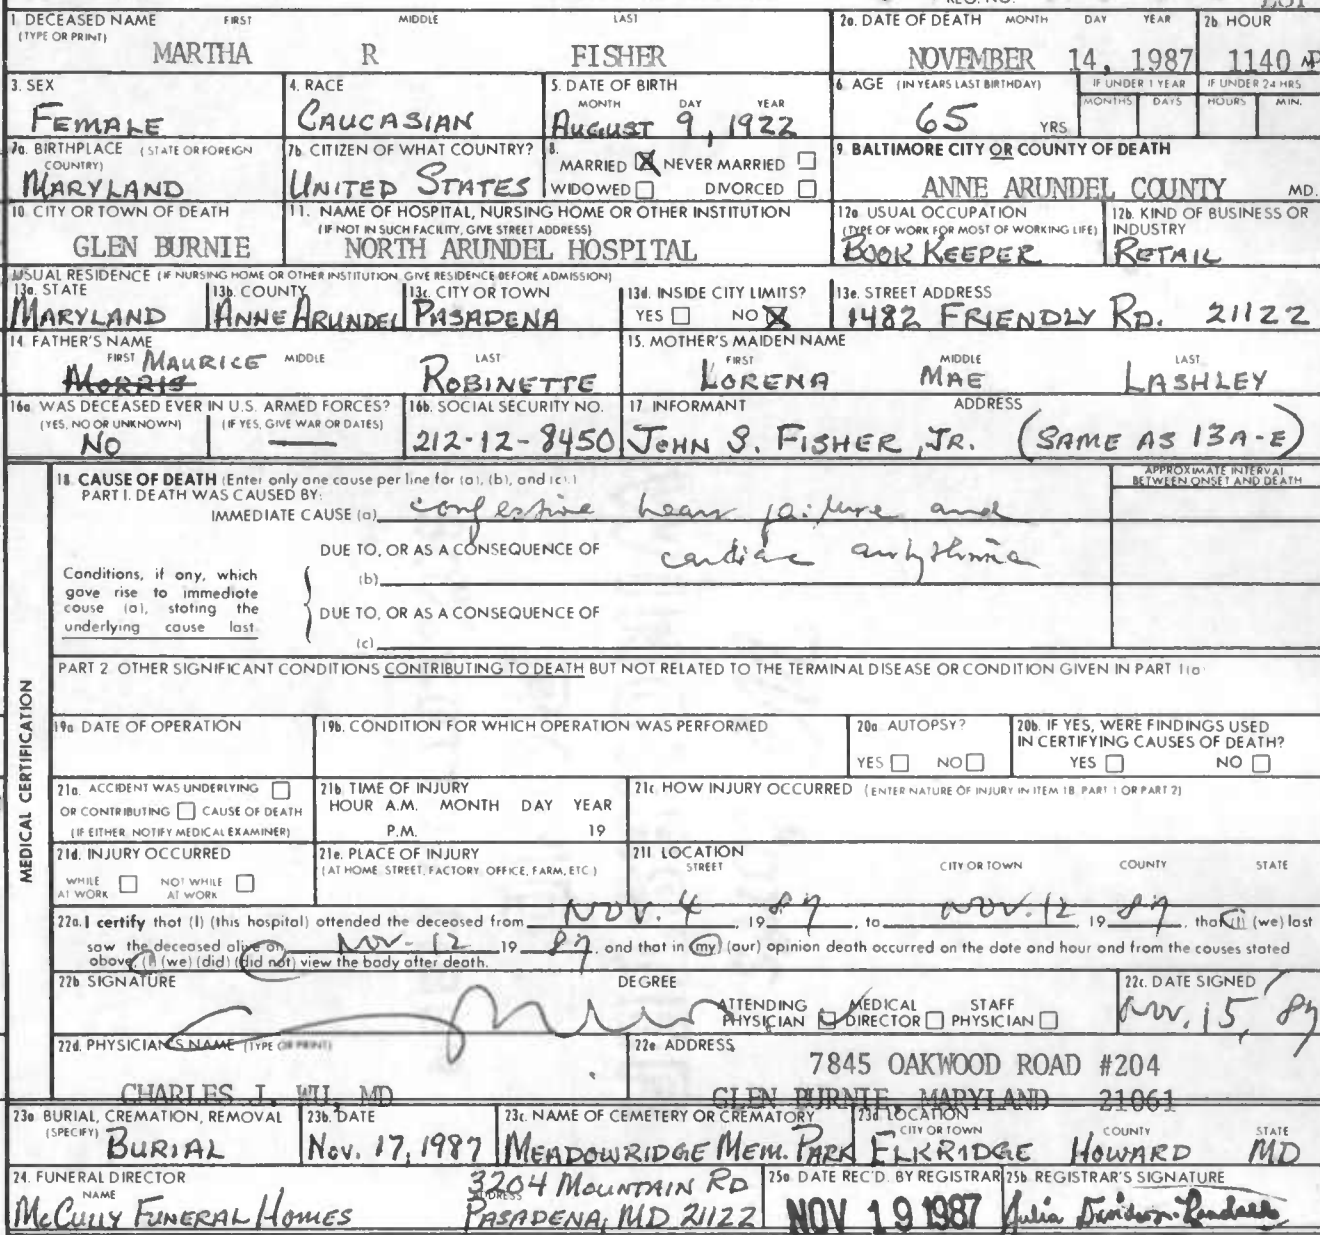 1 DECEASED NAME FIRST MIDDLE LAST
(TYPE OR PRINT)
MARTHA R FISHER
2a. DATE OF DEATH MONTH DAY YEAR
NOVEMBER 14, 1987
2b HOUR
1140
3. SEX
FEMALE
4. RACE
CAUCASIAN
5. DATE OF BIRTH
MONTH DAY YEAR
AUGUST 9, 1922
6 AGE (IN YEARS LAST BIRTHDAY)
65 YRS
IF UNDER 1 YEAR
MONTHS DAYS
IF UNDER 24 HRS
HOURS MIN.
7a. BIRTHPLACE (STATE OR FOREIGN
COUNTRY)
MARYLAND
7b CITIZEN OF WHAT COUNTRY?
UNITED STATES
8.
MARRIED NEVER MARRIED
WIDOWED DIVORCED
9 BALTIMORE CITY OR COUNTY OF DEATH
ANNE ARUNDEL COUNTY MD.
10 CITY OR TOWN OF DEATH
GLEN BURNIE
11. NAME OF HOSPITAL, NURSING HOME OR OTHER INSTITUTION
(IF NOT IN SUCH FACILITY, GIVE STREET ADDRESS)
NORTH ARUNDEL HOSPITAL
12a USUAL OCCUPATION
(TYPE OF WORK FOR MOST OF WORKING LIFE)
BOOK KEEPER
12b. KIND OF BUSINESS OR
INDUSTRY
RETAIL
USUAL RESIDENCE (IF NURSING HOME OR OTHER INSTITUTION GIVE RESIDENCE BEFORE ADMISSION)
13a. STATE
MARYLAND
13b. COUNTY
ANNE ARUNDEL
13c. CITY OR TOWN
PASADENA
13d. INSIDE CITY LIMITS?
YES NO
13e. STREET ADDRESS
1482 FRIENDLY RD. 21122
14. FATHER'S NAME
FIRST MIDDLE LAST
MAURICE
MORRIS ROBINETTE
15. MOTHER'S MAIDEN NAME
FIRST MIDDLE LAST
LORENA MAE LASHLEY
16a WAS DECEASED EVER IN U.S. ARMED FORCES?
(YES, NO OR UNKNOWN) (IF YES, GIVE WAR OR DATES)
NO —
16b. SOCIAL SECURITY NO.
212-12-8450
17 INFORMANT ADDRESS
JOHN S. FISHER, JR. (SAME AS 13A-E)
MEDICAL CERTIFICATION
18 CAUSE OF DEATH (Enter only one cause per line for (a), (b), and (c).)
PART I. DEATH WAS CAUSED BY:
APPROXIMATE INTERVAL
BETWEEN ONSET AND DEATH
IMMEDIATE CAUSE (a) congestive heart failure and
DUE TO, OR AS A CONSEQUENCE OF cardiac arrhythmia
(b)
Conditions, if any, which
gave rise to immediate
cause (a), stating the
underlying cause last
DUE TO, OR AS A CONSEQUENCE OF
(c)
PART 2 OTHER SIGNIFICANT CONDITIONS CONTRIBUTING TO DEATH BUT NOT RELATED TO THE TERMINAL DISEASE OR CONDITION GIVEN IN PART 1(a)
19a DATE OF OPERATION
19b. CONDITION FOR WHICH OPERATION WAS PERFORMED
20a AUTOPSY?
YES NO
20b. IF YES, WERE FINDINGS USED
IN CERTIFYING CAUSES OF DEATH?
YES NO
21a. ACCIDENT WAS UNDERLYING
OR CONTRIBUTING CAUSE OF DEATH
(IF EITHER, NOTIFY MEDICAL EXAMINER)
21b TIME OF INJURY
HOUR A.M. MONTH DAY YEAR
P.M. 19
21c HOW INJURY OCCURRED (ENTER NATURE OF INJURY IN ITEM 18, PART 1 OR PART 2)
21d. INJURY OCCURRED
WHILE AT WORK NOT WHILE AT WORK
21e. PLACE OF INJURY
(AT HOME, STREET, FACTORY, OFFICE, FARM, ETC)
21f LOCATION
STREET CITY OR TOWN COUNTY STATE
22a. I certify that (I) (this hospital) attended the deceased from NOV. 4 19 87, to NOV. 12 19 87, that (I) (we) last
saw the deceased alive on NOV. 12 19 87, and that in (my) (our) opinion death occurred on the date and hour and from the causes stated
above, (I) (we) (did) (did not) view the body after death.
22b SIGNATURE DEGREE
ATTENDING PHYSICIAN MEDICAL DIRECTOR STAFF PHYSICIAN
22c. DATE SIGNED
Nov. 15, 87
22d. PHYSICIAN'S NAME (TYPE OR PRINT)
CHARLES J. WU, MD
22e ADDRESS
7845 OAKWOOD ROAD #204
GLEN BURNIE, MARYLAND 21061
23a BURIAL, CREMATION, REMOVAL
(SPECIFY) BURIAL
23b. DATE
Nov. 17, 1987
23c. NAME OF CEMETERY OR CREMATORY
MEADOWRIDGE MEM. PARK
23d LOCATION
CITY OR TOWN COUNTY STATE
ELKRIDGE HOWARD MD
24. FUNERAL DIRECTOR
NAME ADDRESS
McCULLY FUNERAL HOMES
3204 MOUNTAIN RD
PASADENA, MD 21122
25a DATE REC'D. BY REGISTRAR
NOV 19 1987
25b REGISTRAR'S SIGNATURE
Julia Davidson-Randall